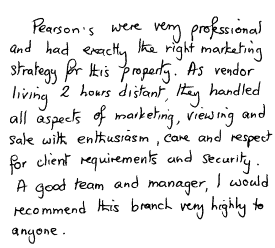 Pearson's were very professional
and had exactly the right marketing
strategy for this property. As vendor
living 2 hours distant, they handled
all aspects of marketing, viewing and
sale with enthusiasm, care and respect
for client requirements and security.
A good team and manager, I would
recommend this branch very highly to
anyone.